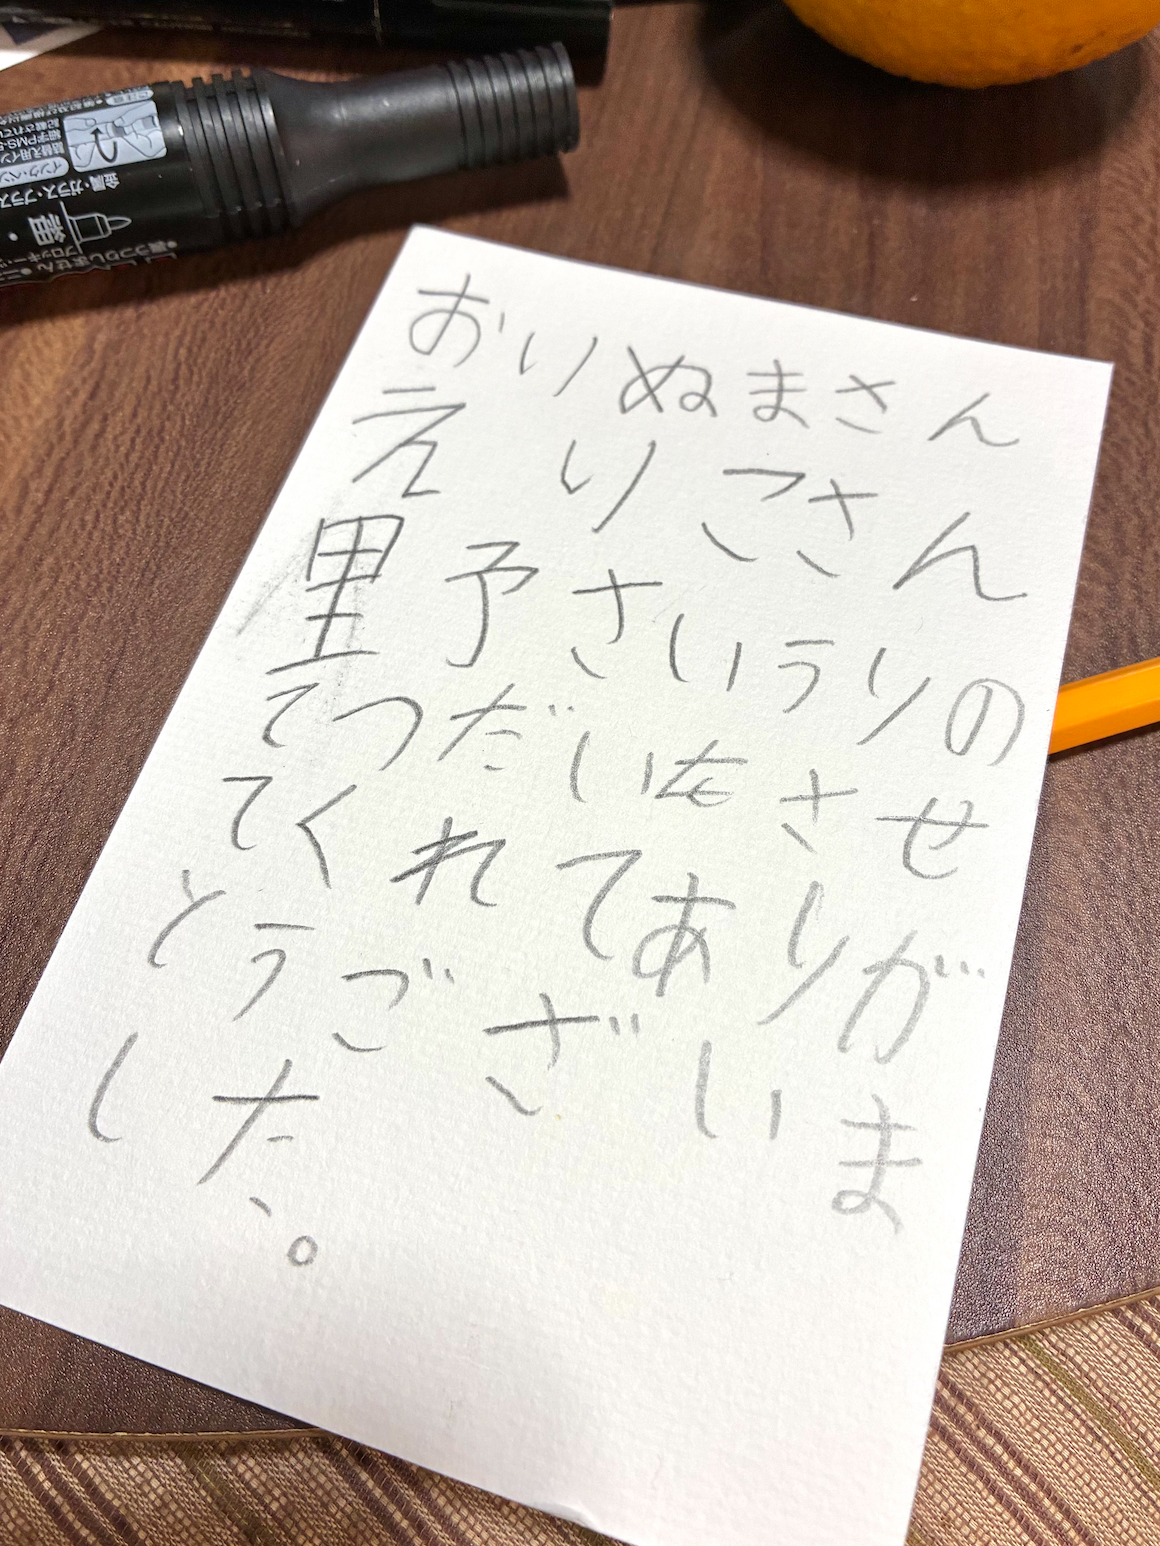 おりぬまさん
えりこさん
里予さいうりの
てつだいをさせ
てくれてありが
とうございま
した。
細
金属・ガラス・プラス